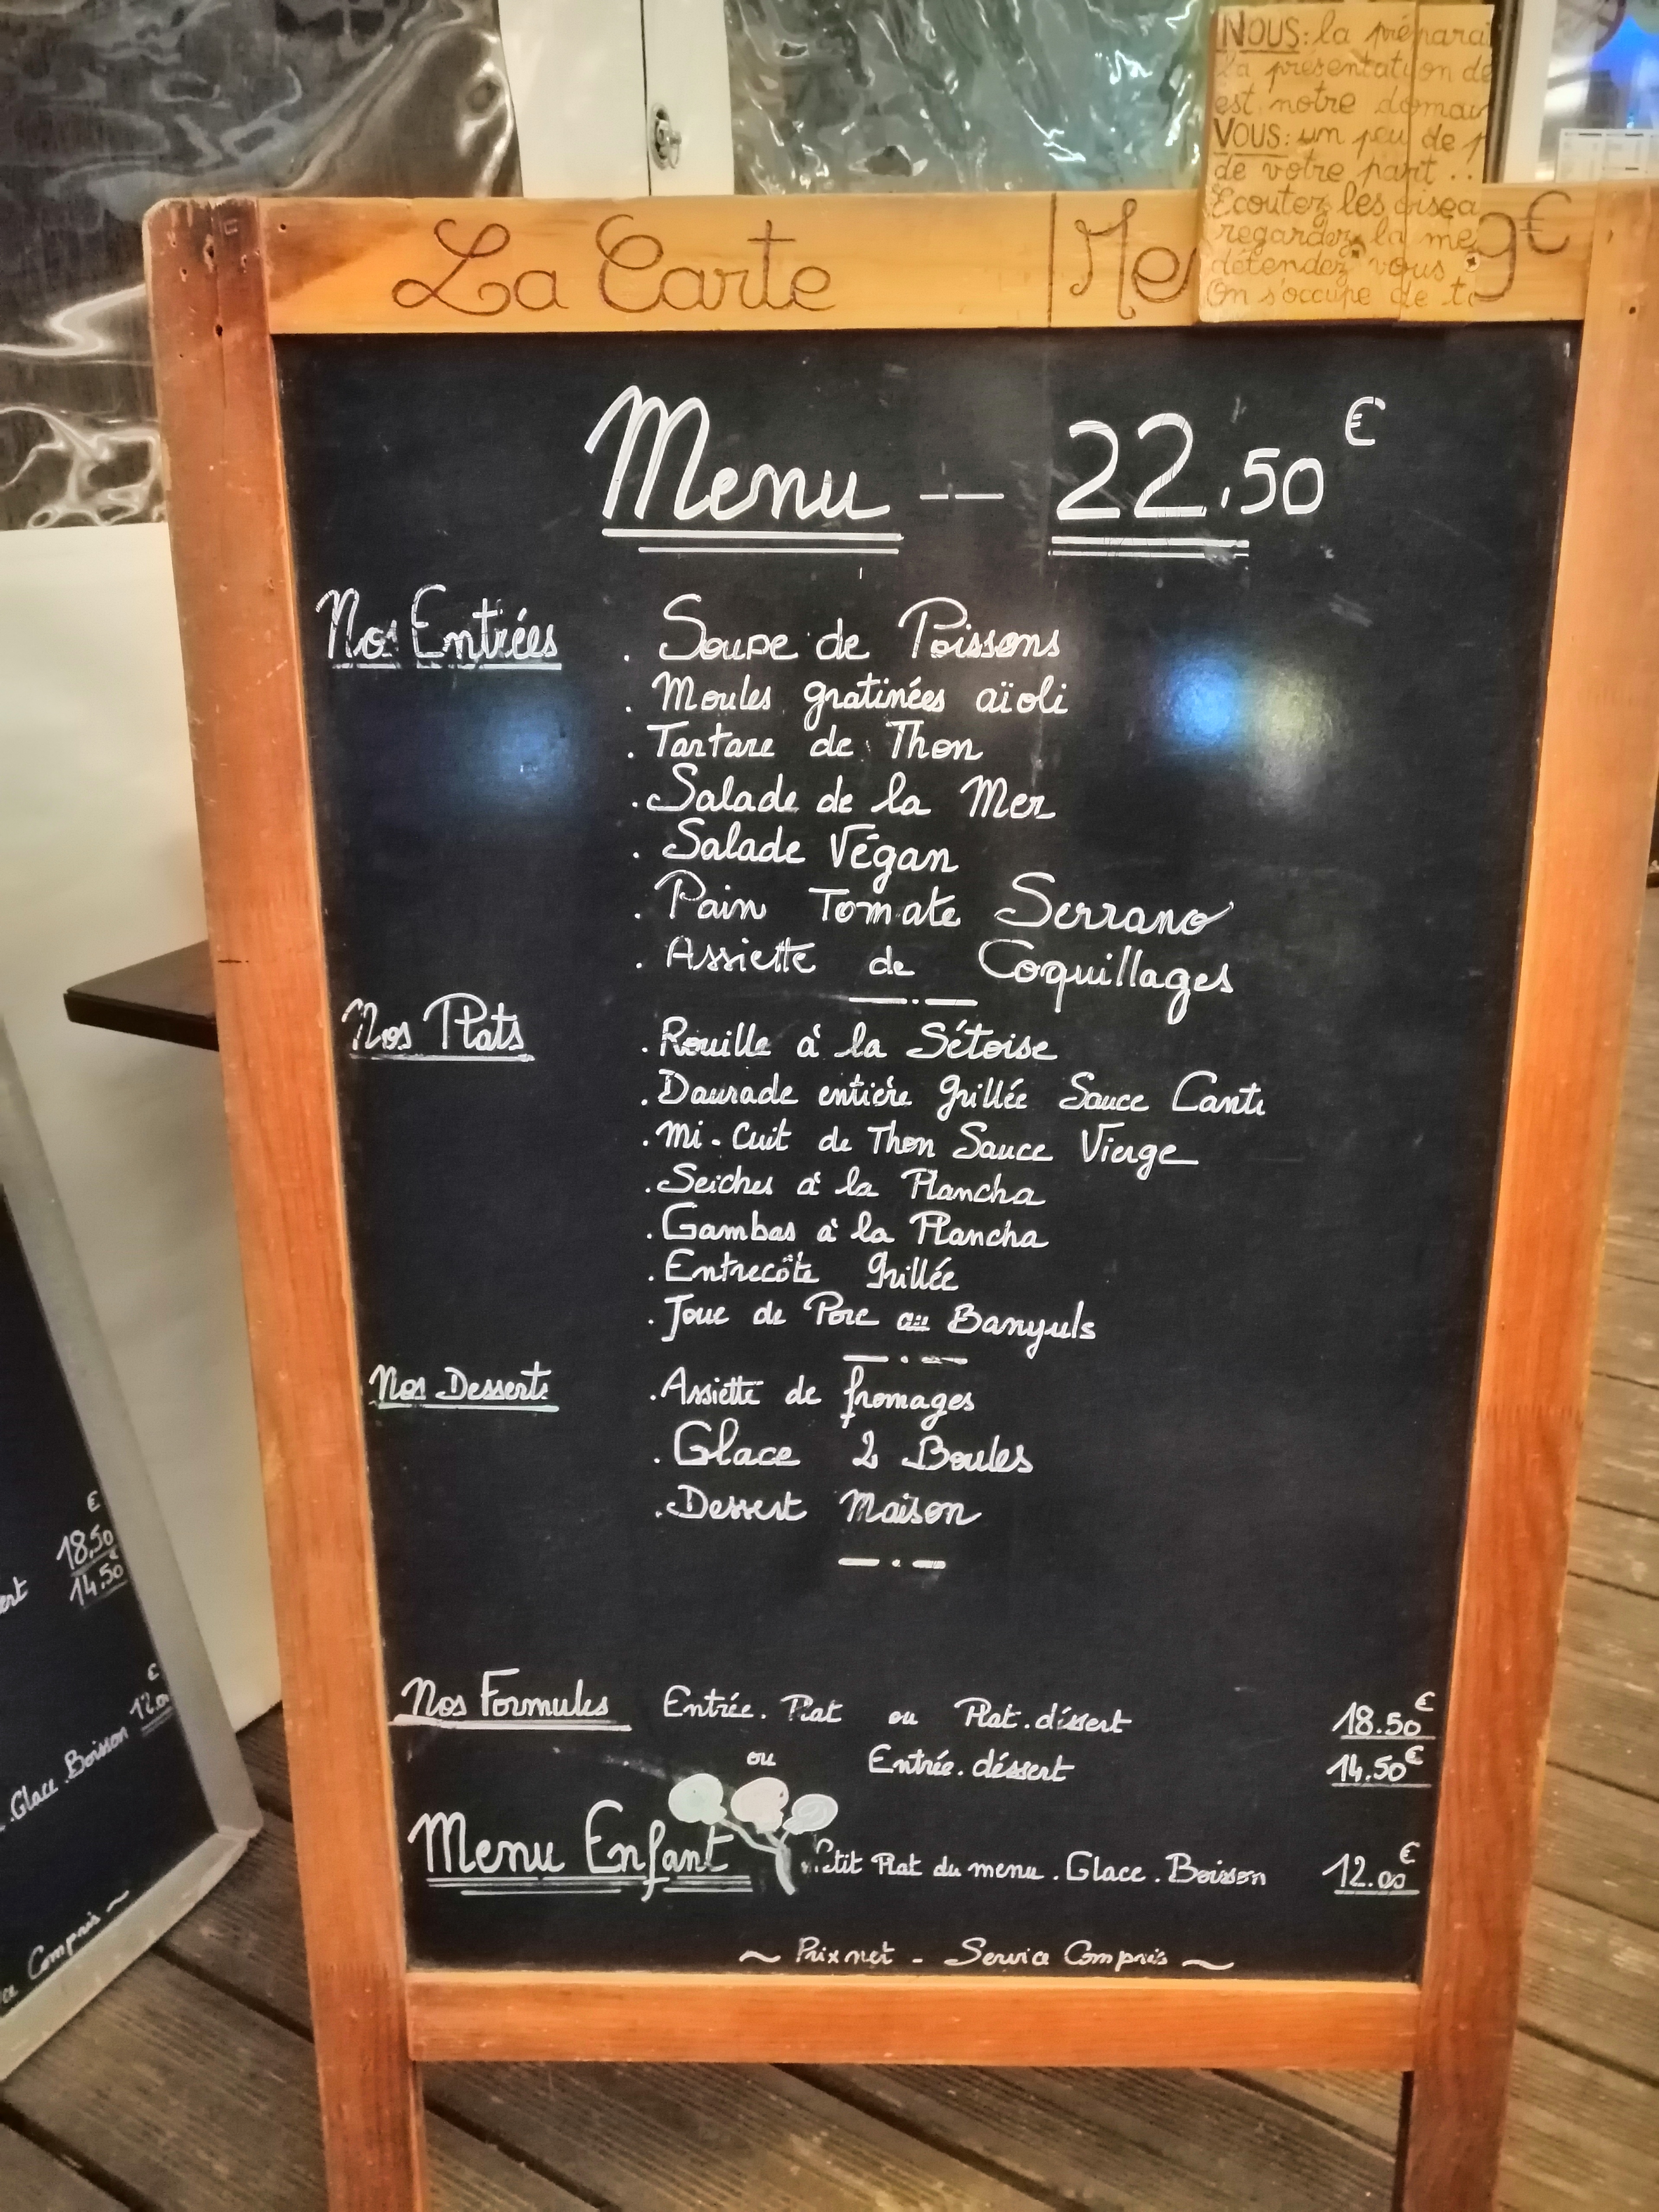 NOUS: la prépara
la présentation de
est notre domai
VOUS: un peu de p
de votre part ..
Ecoutez les oisea
regardez la me
détendez vous,
On s'occupe de to
La Carte Me 9€
Menu -- 22.50€
Nos Entrées . Soupe de Poissons
. Moules gratinées aïoli
. Tartare de Thon
. Salade de la Mer
. Salade Végan
. Pain Tomate Serrano
. Assiette de Coquillages
Nos Plats . Rouille à la Sétoise
. Daurade entière grillée Sauce
. Mi-Cuit de Thon Sauce Vierge
. Seiches à la Plancha
. Gambas à la Plancha
. Entrecôte grillée
. Joue de Porc au Banyuls
Nos Desserts . Assiette de fromages
. Glace 2 Boules
. Dessert Maison
Nos Formules Entrée. Plat ou Plat. déssert 18.50€
ou Entrée. déssert 14.50€
Menu Enfant Petit Plat du menu. Glace. Boisson 12.00€
~ Prix net - Service Compris ~
€
18.50
€
ert 14.50
€
. Glace. Boisson 12.00
ce Compris ~